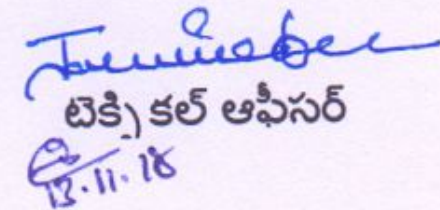 టెక్ని కల్ ఆఫీసర్
13.11.18